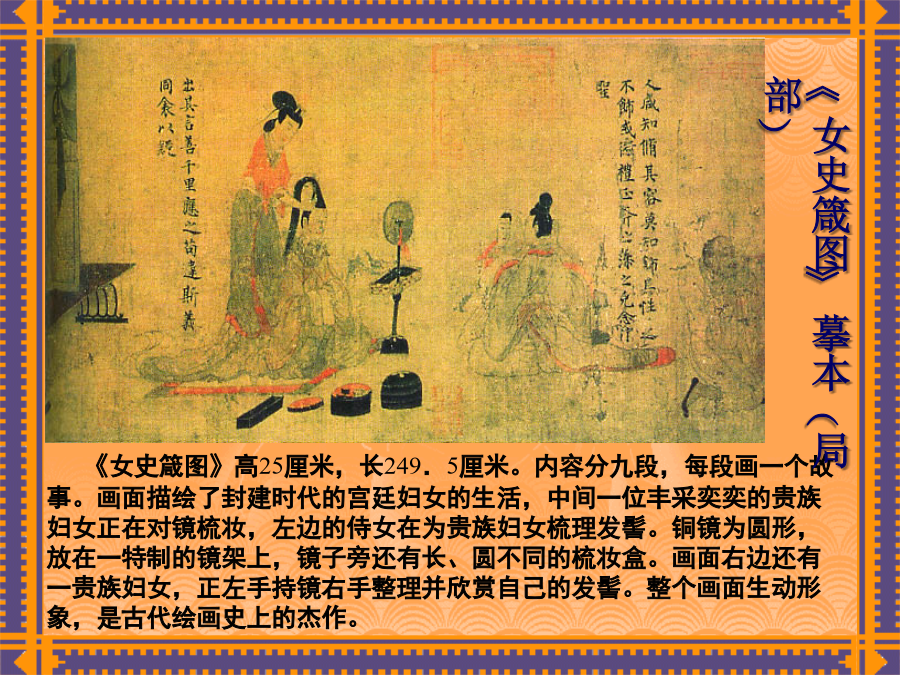 《女史箴图》 摹本（局
部）
人咸知脩其容莫知飾其性
不飾或愆禮正斧之藻之克念作
聖
出其言善千里應之苟違斯義
同衾以疑
《女史箴图》高25厘米，长249．5厘米。内容分九段，每段画一个故
事。画面描绘了封建时代的宫廷妇女的生活，中间一位丰采奕奕的贵族
妇女正在对镜梳妆，左边的侍女在为贵族妇女梳理发髻。铜镜为圆形，
放在一特制的镜架上，镜子旁还有长、圆不同的梳妆盒。画面右边还有
一贵族妇女，正左手持镜右手整理并欣赏自己的发髻。整个画面生动形
象，是古代绘画史上的杰作。